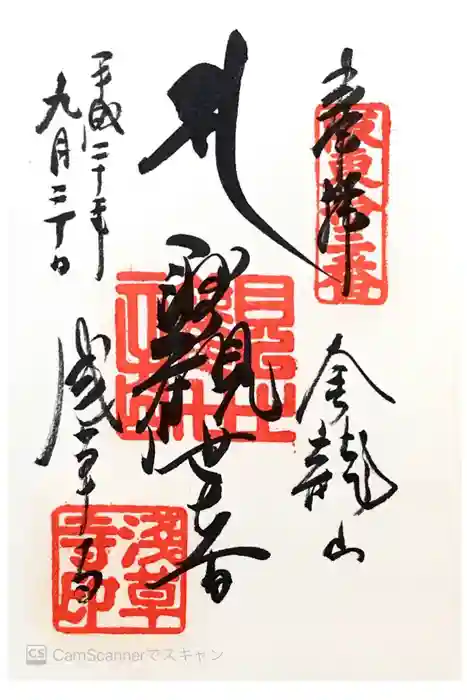 奉拝
坂東拾三番
金龍山
聖観世音
浅草寺
浅草寺印
平成二十年
九月二十日
CS CamScannerでスキャン